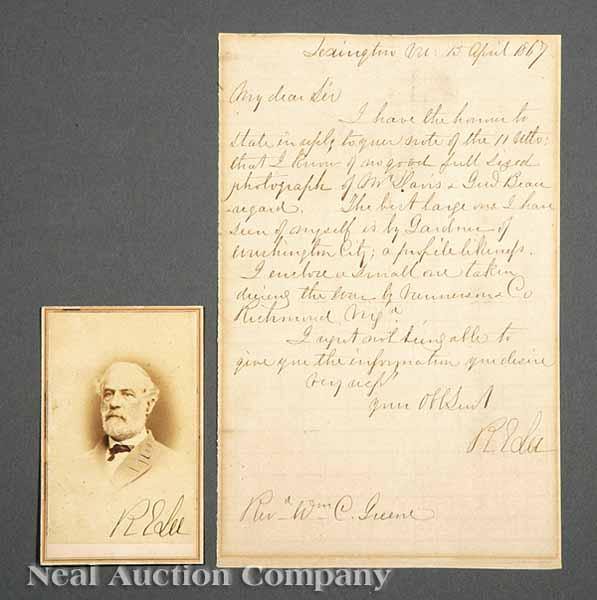 Lexington Va: 15 April 1867
My dear Sir
I have the honour to
state in reply to your note of the 11 Ulto:
that I know of no good full sized
photograph of Mr Davis & Genl Beau
-regard. The best large one I have
seen of myself is by Gardner of
Washington City; a profile likeness.
I enclose a small one taken
during the war by Vannerson & Co
Richmond Virga
I regret not being able to
give you the information you desire
Very respy
your Obt Servt
R E Lee
Revd Wm C. Greene
R E Lee
Neal Auction Company